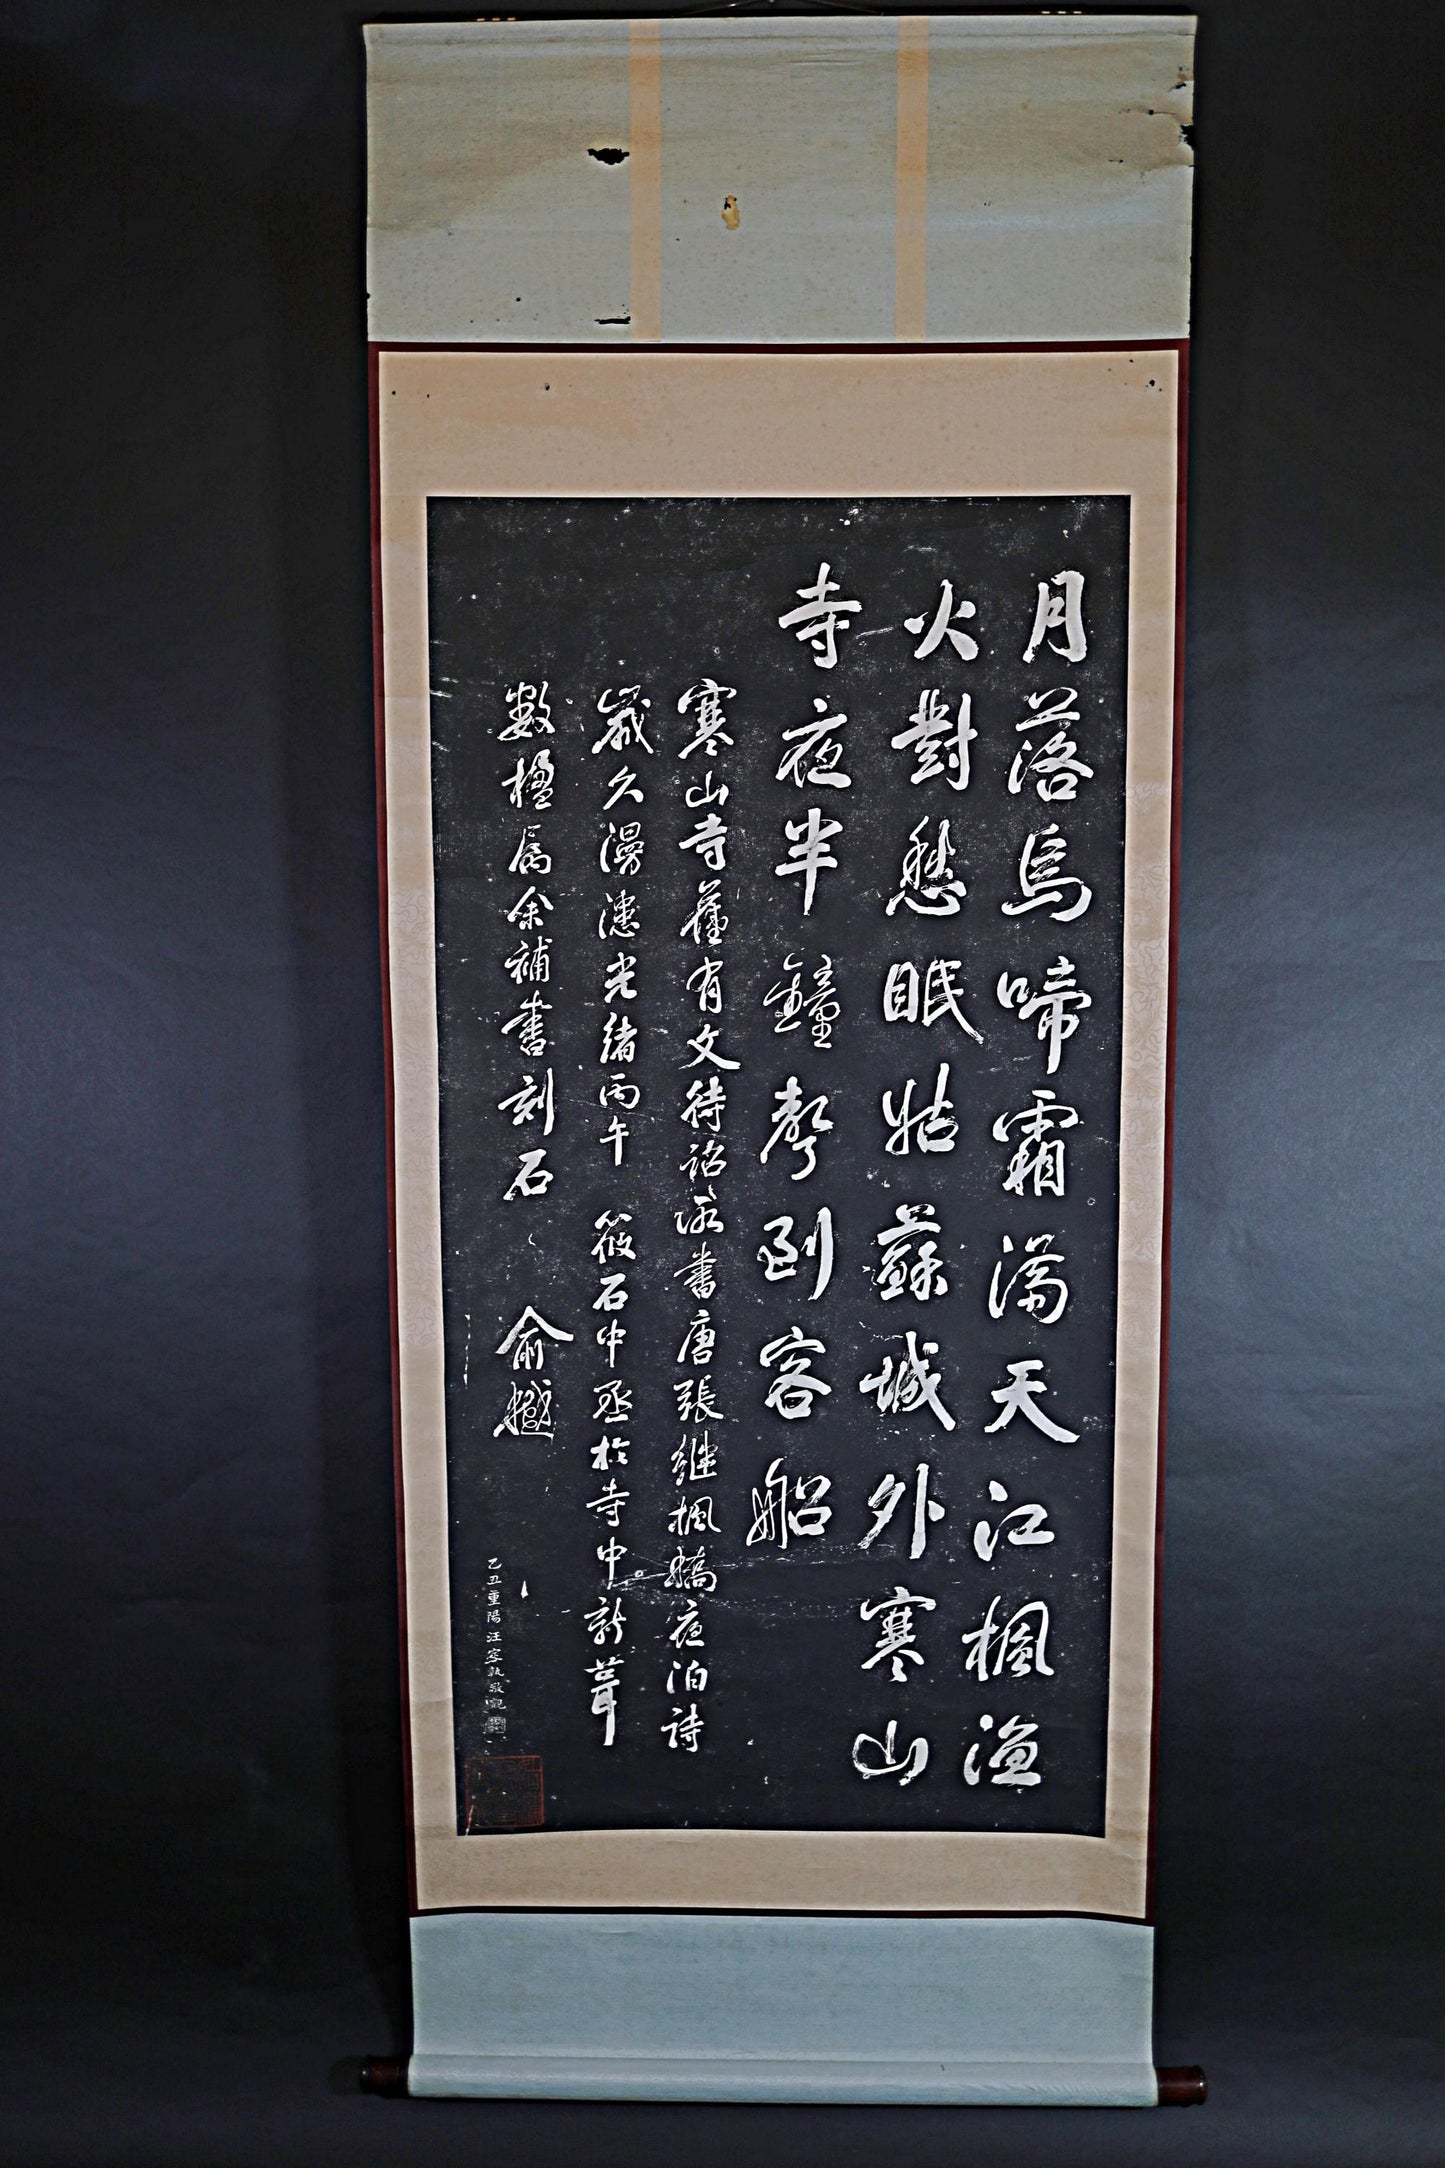 月落烏啼霜滿天江楓漁
火對愁眠姑蘇城外寒山
寺夜半鐘聲到客船
寒山寺舊有文待詔所書唐張繼楓橋夜泊詩
歲久漫漶光緒丙午 筱石中丞於寺中新葺
數楹屬余補書刻石 俞樾
乙丑重陽汪